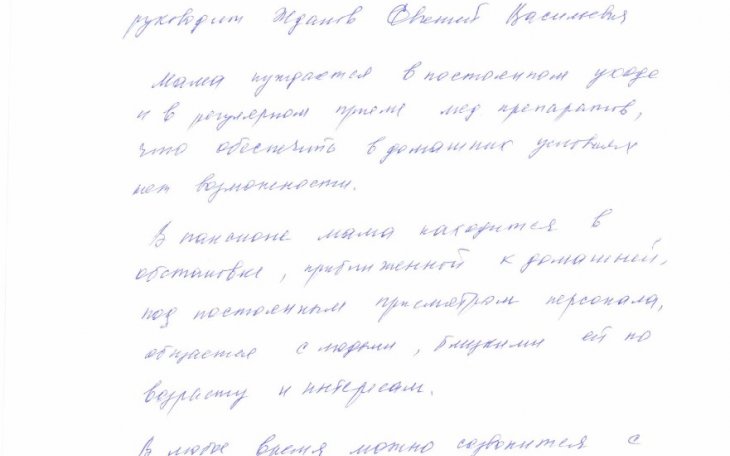 руководит Жданов Евгений Васильевич
Мама нуждается в постоянном уходе
и в регулярном приеме мед. препаратов,
что обеспечить в домашних условиях
нет возможности.
В пансионе мама находится в
обстановке, приближенной к домашней,
под постоянным присмотром персонала,
общается с людьми, близкими ей по
возрасту и интересам.
В любое время можно созвонится с